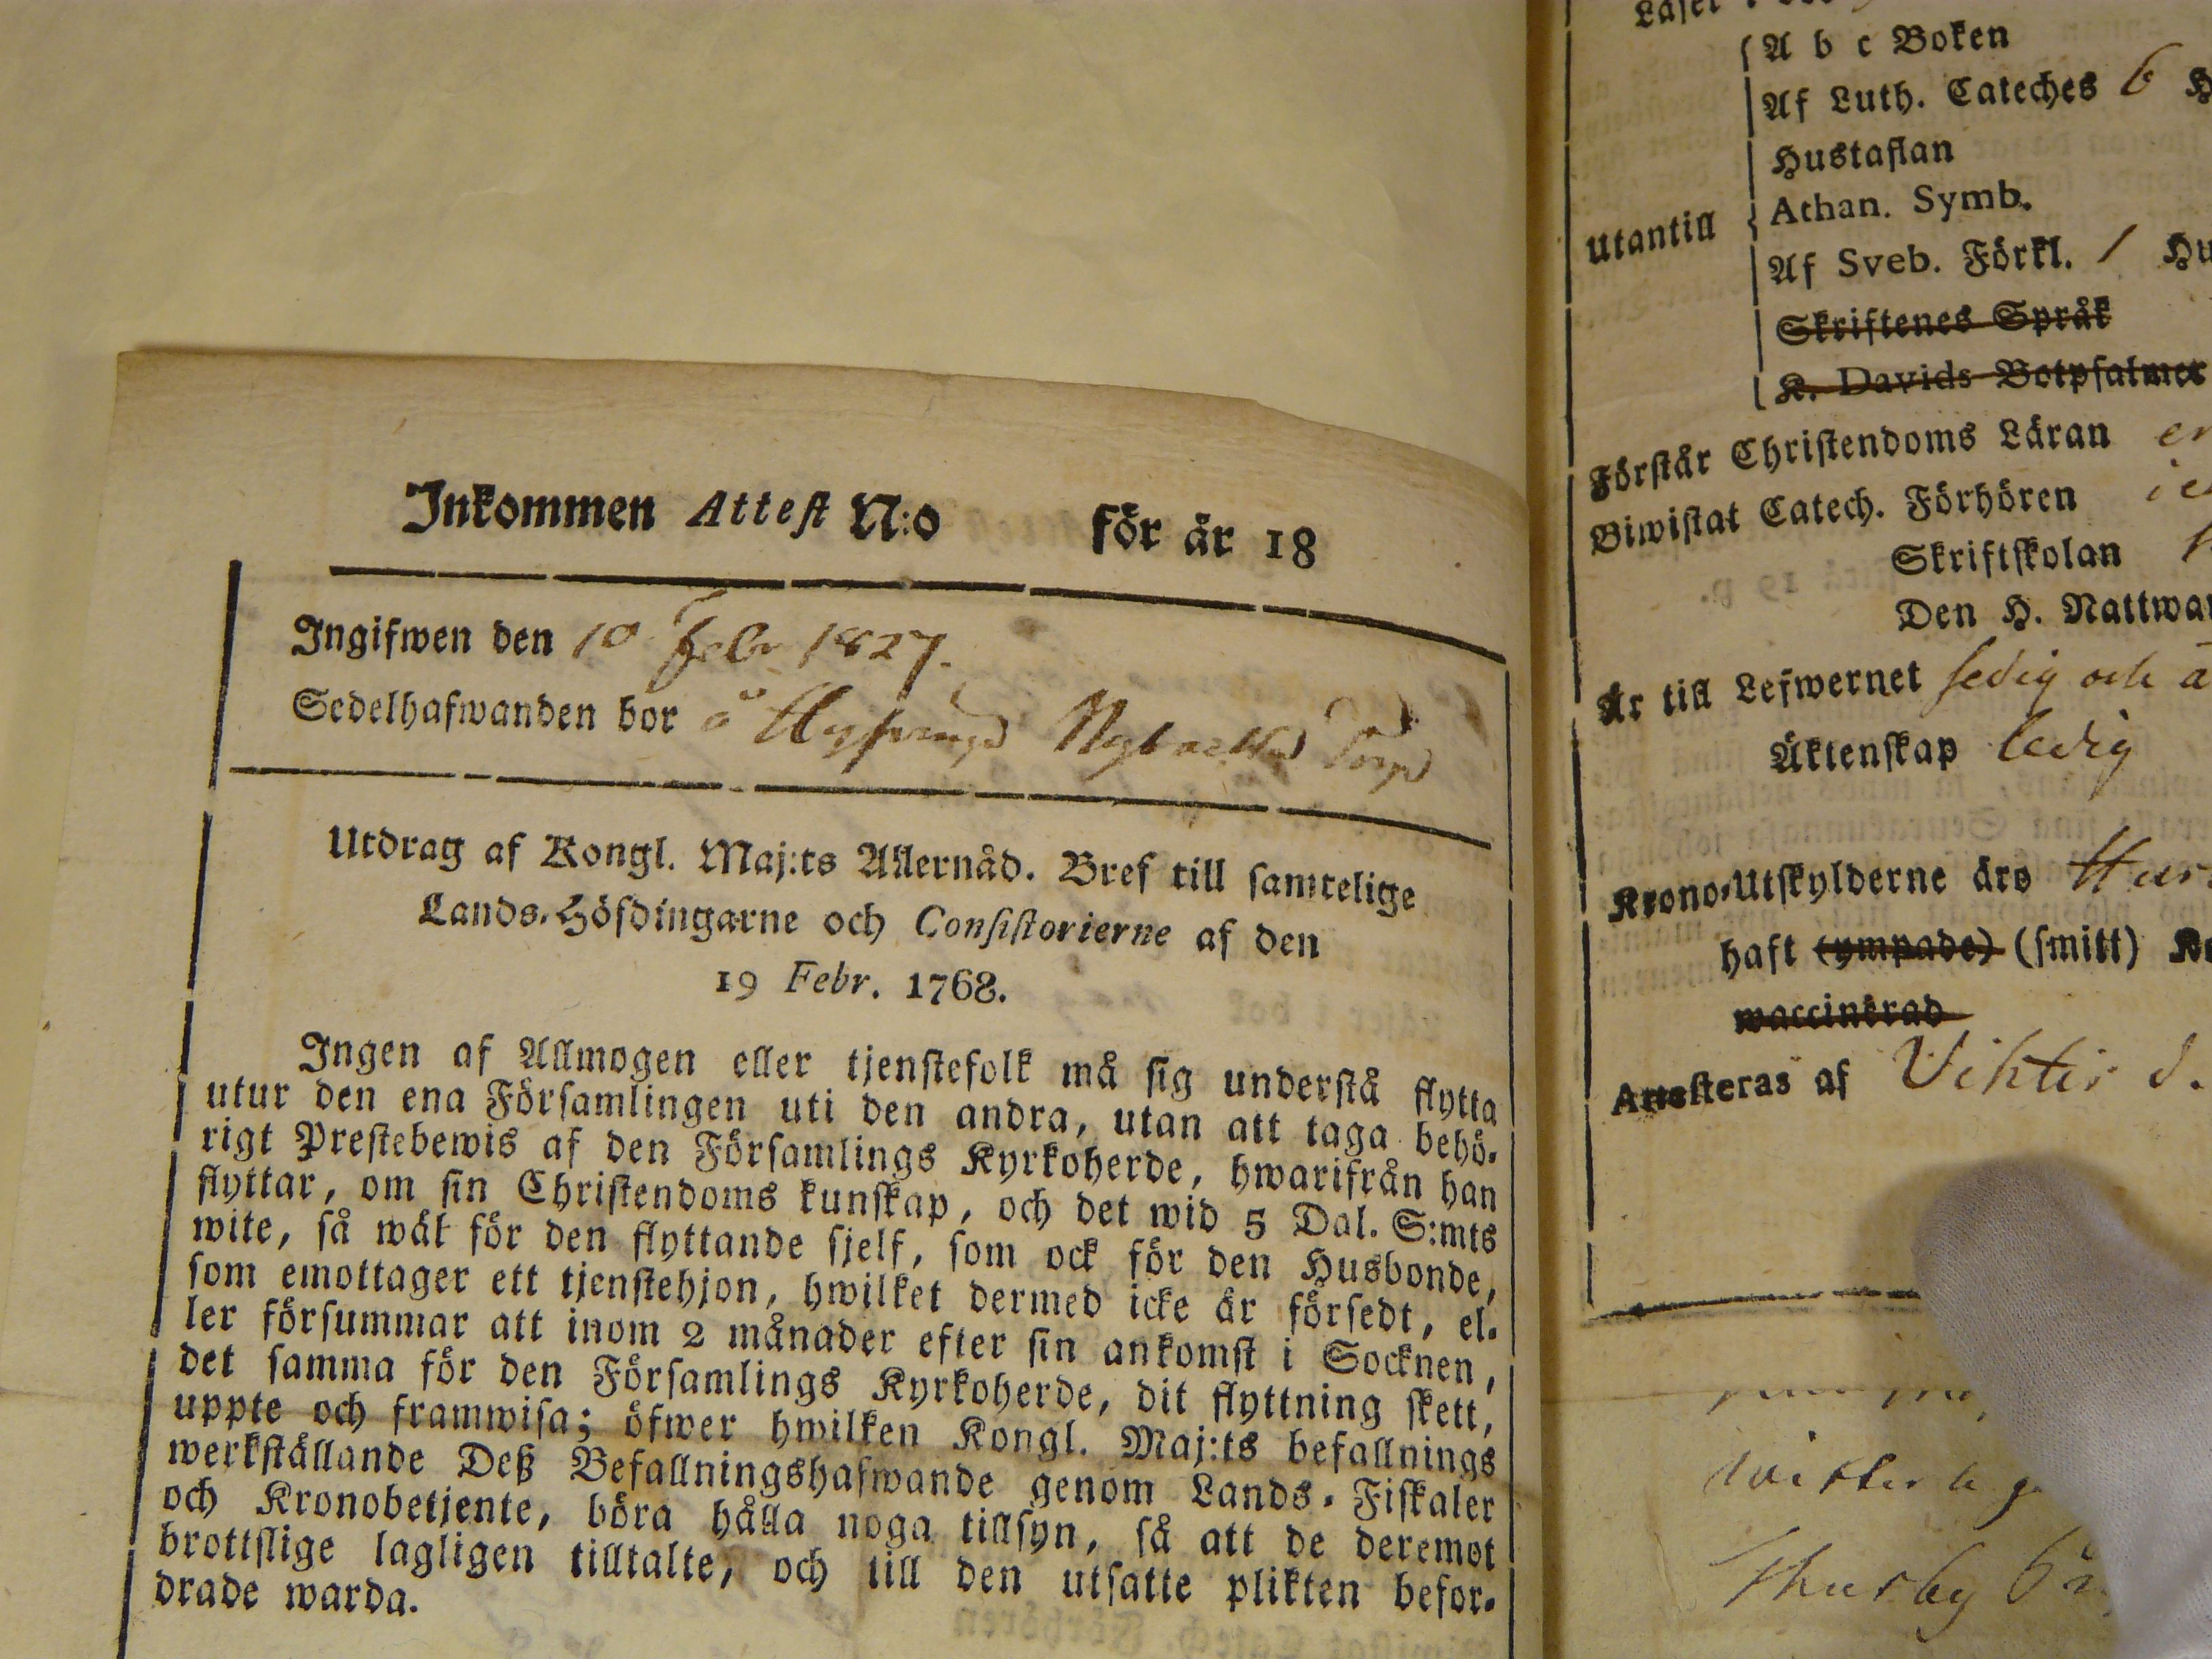 Inkommen Attest N:o för år 18
Ingifwen den 10 Febr 1827.
Sedelhafwanden bor å Nybacka Torp
Utdrag af Kongl. Maj:ts Allernåd. Bref till samtelige
Lands-Höfdingarne och Consistorierne af den
19 Febr. 1768.
Ingen af Allmogen eller tjenstefolk må sig understå flytta
utur den ena Församlingen uti den andra, utan att taga behö-
rigt Prestebewis af den Församlings Kyrkoherde, hwarifrån han
flyttar, om sin Christendoms kunskap, och det wid 5 Dal. S:mts
wite, så wäl för den flyttande sjelf, som ock för den Husbonde,
som emottager ett tjenstehjon, hwilket dermed icke är försedt, el-
ler försummar att inom 2 månader efter sin ankomst i Socknen,
det samma för den Församlings Kyrkoherde, dit flyttning skett,
uppte och framwisa; öfwer hwilken Kongl. Maj:ts befallnings
werkställande Deß Befallningshafwande genom Lands-Fiskaler
och Kronobetjente, böra hålla noga tillsyn, så att de deremot
brottslige lagligen tilltalte, och till den utsatte plikten befor-
drade warda.
Läser i
A b c Boken
Af Luth. Cateches 6 H
Hustaflan
Utantill
Athan. Symb.
Af Sveb. Förkl. 1 Hu
Skriftenes Språk
K. Davids Botpsalmer
Förstår Christendoms Läran en
Biwistat Catech. Förhören
Skriftskolan
Den H. Nattwar
Är till Lefwernet sedig och ä
Äktenskap ledig
Krono-Utskylderne års
haft (ympade) (smitt) Ko
waccinerad
Attesteras af Vihtis d.